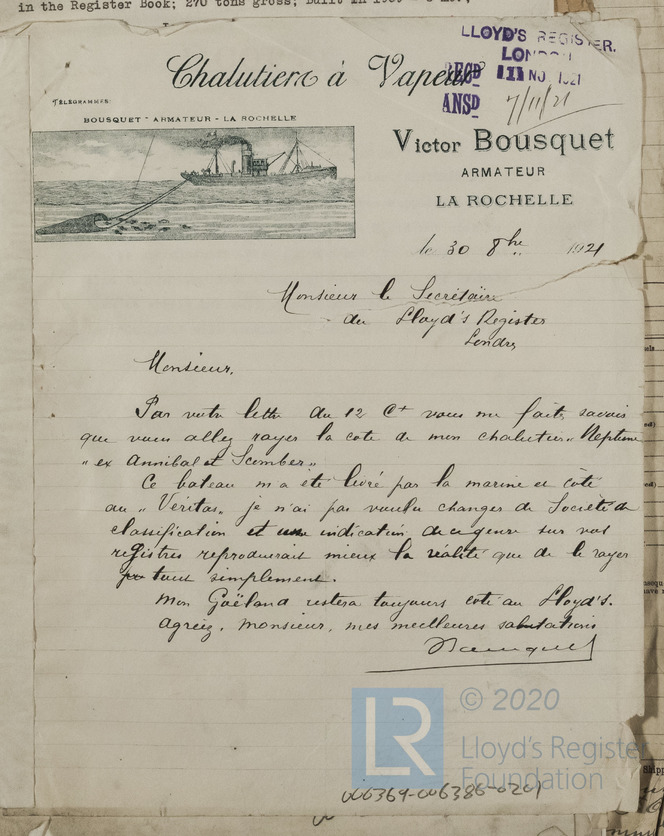 in the Register Book; 270 tons gross; built in
LLOYD'S REGISTER.
LONDON
RECD 11 NO. 1921
ANSD 7/11/21
Chalutiers à Vapeur
TÉLÉGRAMMES
BOUSQUET - ARMATEUR - LA ROCHELLE
Victor Bousquet
ARMATEUR
LA ROCHELLE
le 30 8bre 1921
Monsieur le Secrétaire
du Lloyd's Register
Londres
Monsieur,
Par votre lettre du 12 Ct vous me faites savoir
que vous allez rayer la cote de mon chalutier "Neptune
" ex Annibal et Scomber"
Ce bateau m'a été livré par la marine et côté
au "Veritas" je n'ai pas voulu changer de Société de
classification et une indication de ce genre sur vos
registres reproduirait mieux la réalité que de le rayer
tout simplement.
Mon Goëland restera toujours coté au Lloyd's.
Agréez, Monsieur, mes meilleures salutations
Bousquet
LR © 2020
Lloyd's Register
Foundation
006369-006386-0201